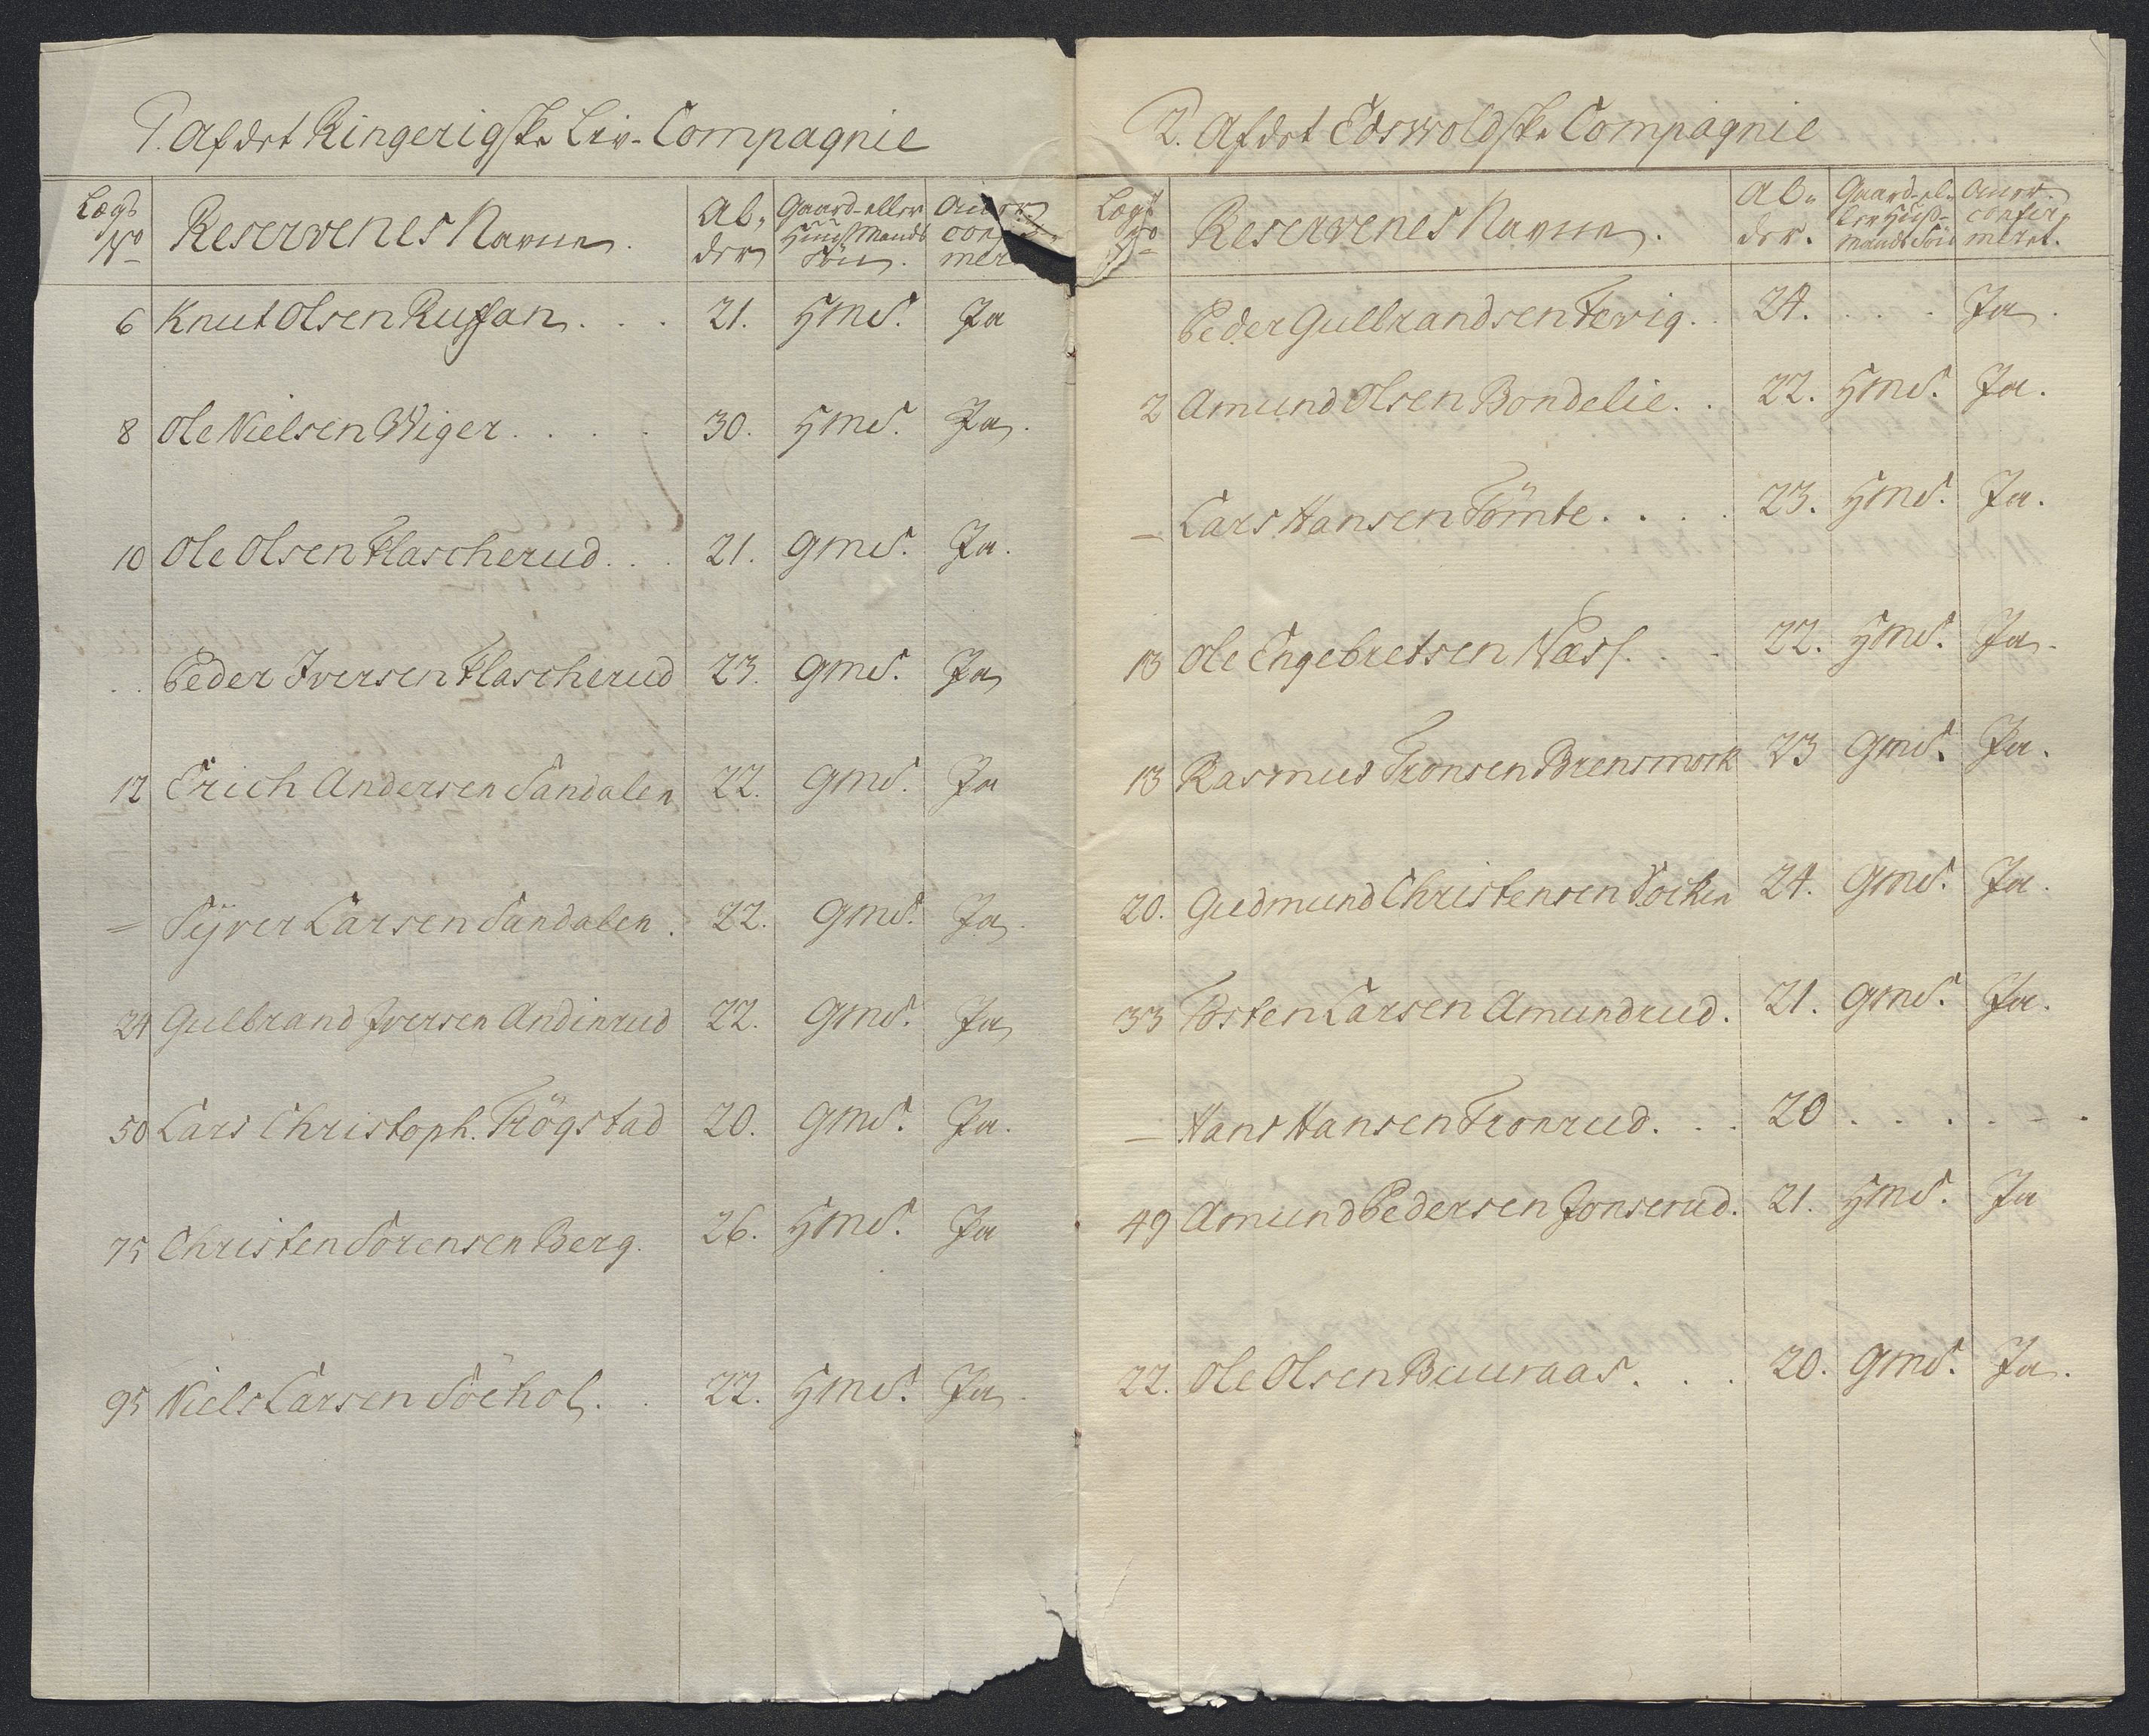 1. Af det Ringerigske Liv-Compagnie
Lægs No
Reservenes Navne.
Al- der
Gaard- eller Huusmands Sön.
6 Knut Olsen Russan . . . 21. HmS. Ja
8 Ole Nielsen Wiger . . . . . 30. HmS. Ja.
10 Ole Olsen Flascherud . . . 21. GmS. Ja.
. . Peder Iversen Flascherud 23. GmS. Ja
12 Erich Andersen Sandalen 22. GmS. Ja
- Syver Larsen Sandalen . 22. GmS. Ja.
24 Gulbrand Iversen Andinrud 22. GmS. Ja
50 Lars Christoph. Trögstad 20. GmS. Ja.
75 Christen Sörensen Berg. 26. HmS. Ja
95 Niels Larsen Söehol. . 22. HmS. Ja.
2. Af det Edswoldske Compagnie
Lægs No
Reservenes Navne.
Al- der.
Gaard- el- ler Huus- mands Sön
confir- meret.
Peder Gulbrandsen Tevig. . 24. . . . Ja.
2 Amund Olsen Bondelie. . 22. HmS. Ja.
- Lars Hansen Tömte. . . . 23. HmS. Ja.
13 Ole Engebretsen Næss. . . 22. HmS. Ja.
13 Rasmus Tronsen Brensmork 23 GmS. Ja.
20. Gudmund Christensen 24. GmS. Ja.
33 Tosten Larsen Amundrud. 21. GmS. Ja.
- Hans Hansen Tronrud. . . 20 . . . . - .
49 Amund Pedersen Jonserud. 21. HmS. Ja
22. Ole Olsen Buuraas. . . 20. GmS. Ja.